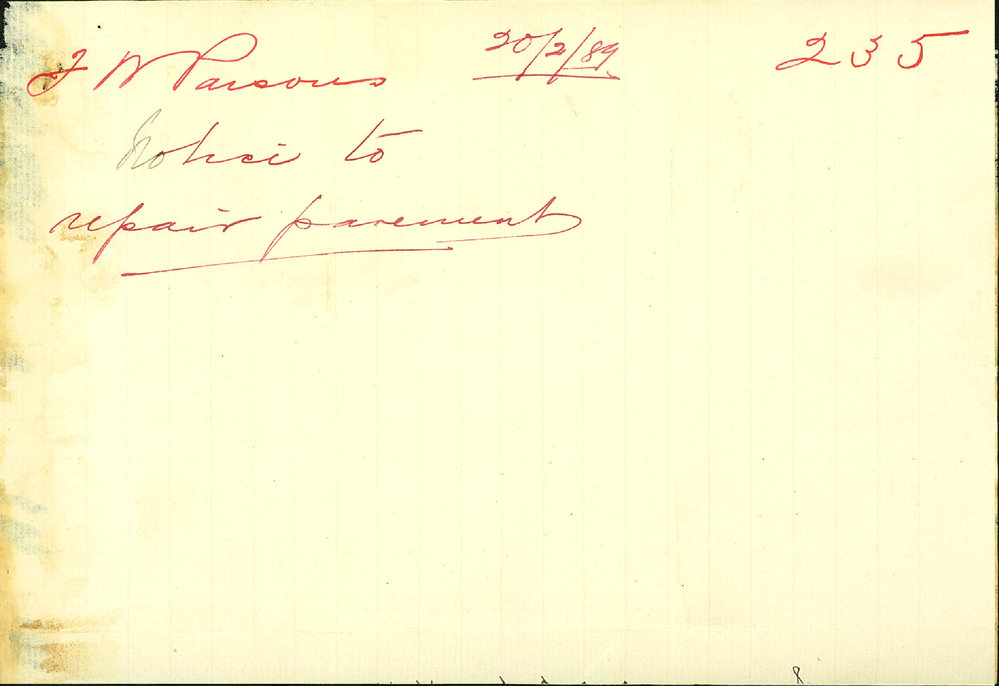 F W Parsons 20/2/89 235
Notice to
repair pavement